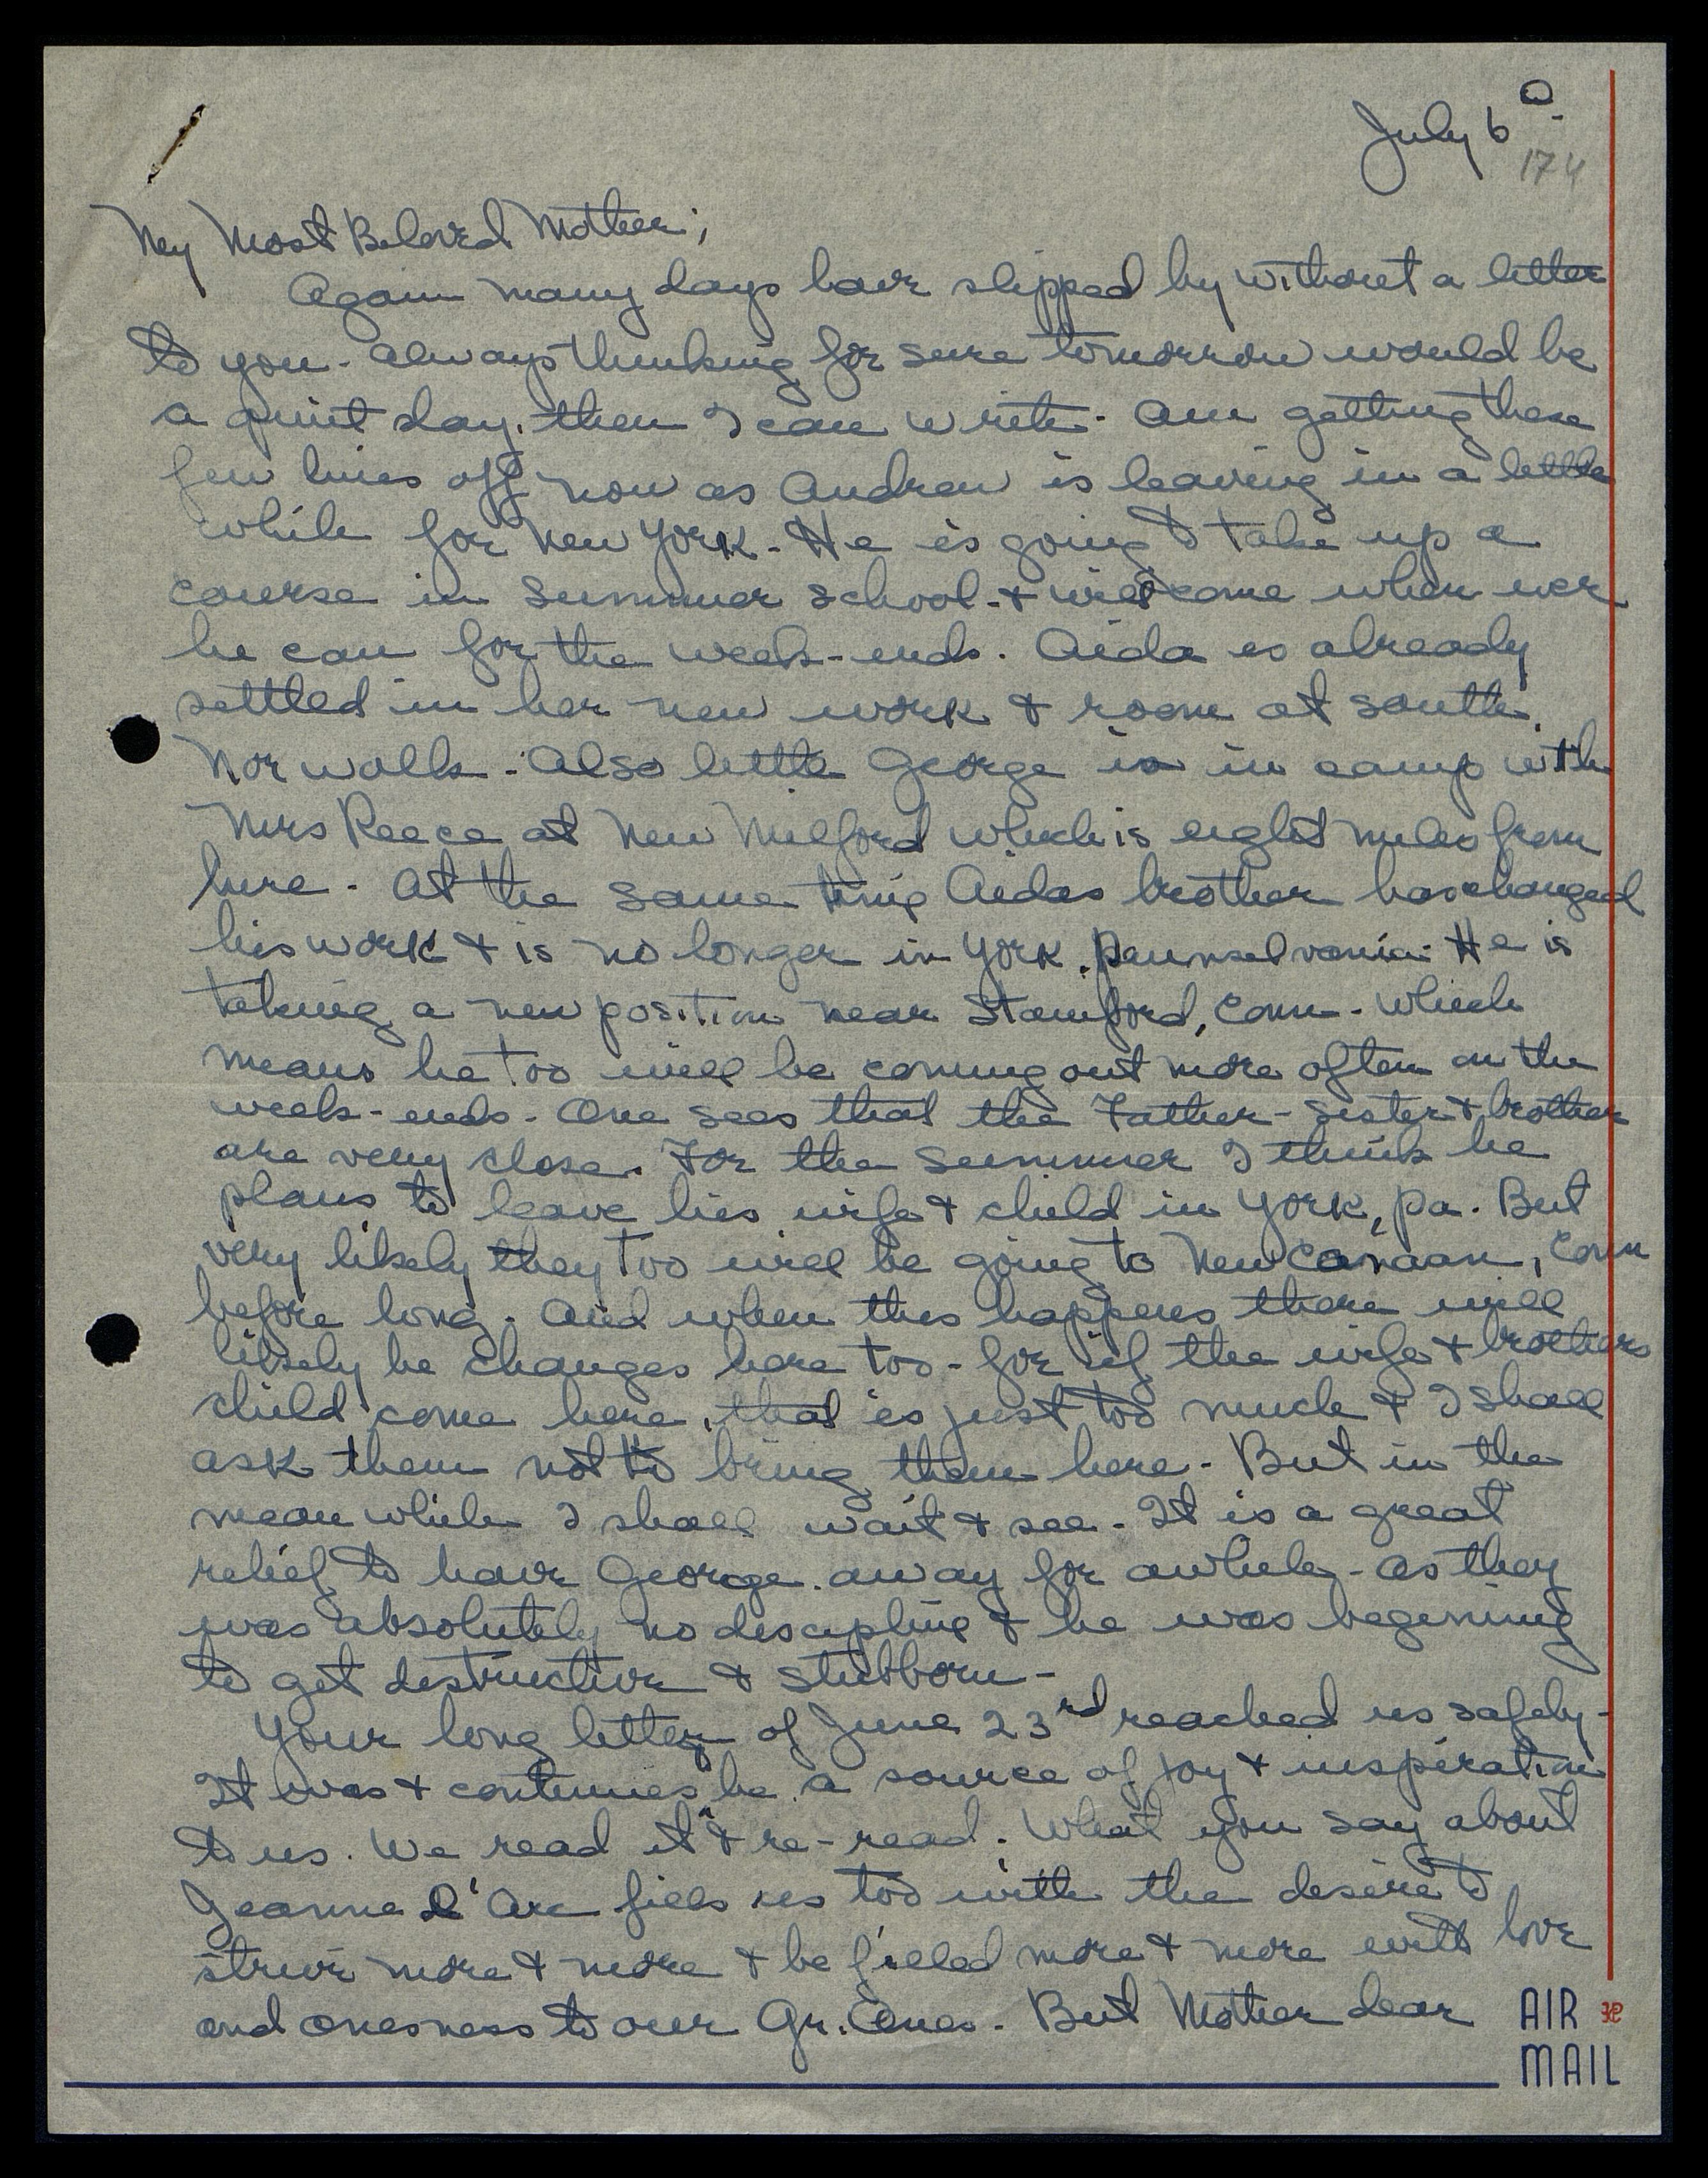 July 6
174
My Most Beloved Mother;
Again many days have slipped by without a letter
to you - always thinking for sure tomorrow would be
a quiet day, then I can write. Am getting these
few lines off now as Andrew is leaving in a little
while for New York - He is going to take up a
course in Summer School - & will come when ever
he can for the week-ends. Aida is already
settled in her new work & room at South
Norwalk - Also little George is in camp with
Mrs Reece at New Milford which is eight miles from
here - At the same time Aidas brother has changed
his work & is no longer in York, Pennselvania. He is
taking a new position near Stamford, Conn - which
means he too will be coming out more often on the
week-ends - One sees that the Father - sister & brother
are very close. For the summer I think he
plans to leave his wife & child in York, Pa. But
very likely they too will be going to New Canaan, Conn
before long. And when this happens there will
likely be changes here too - for if the wife & brothers
child come here, that is just too much & I shall
ask them not to bring them here - But in the
mean while I shall wait & see - It is a great
relief to have George away for awhile - as they
was absolutely no discipline & he was begening
to get destructive & stubborn -
Your long letter of June 23rd reached us safely -
It was & continues be a source of joy & inspiration
to us. We read it & re-read. What you say about
Jeanne d'Arc fills us too with the desire to
strive more & more & be filled more & more with love
and onesness to our Gr. Ones - But Mother dear
AIR
MAIL